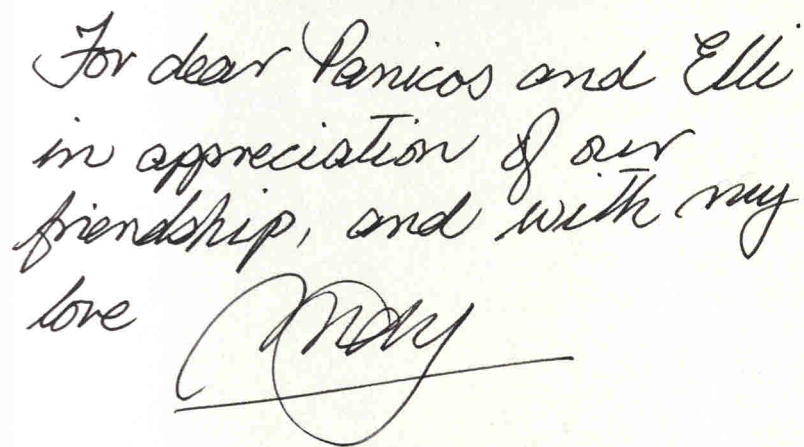 For dear Panicos and Elli
in appreciation of our
friendship, and with my
love Andy